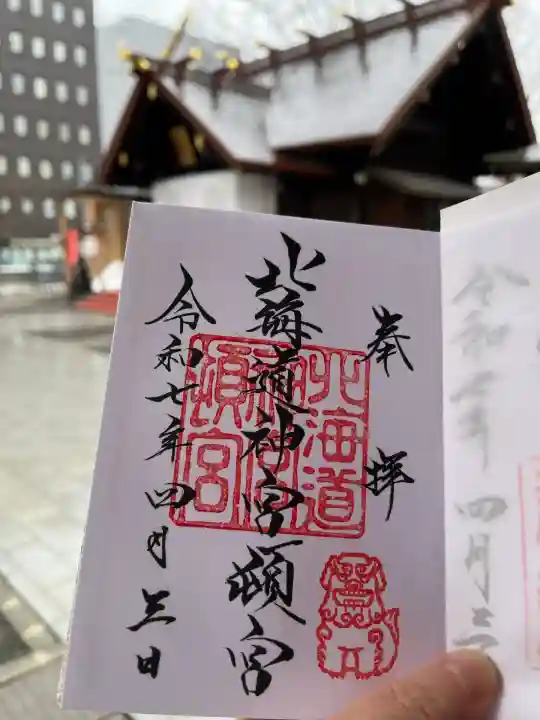 奉拝
北海道神宮頓宮
北海道
神宮
頓宮
令和七年四月三日
令和七年四月三